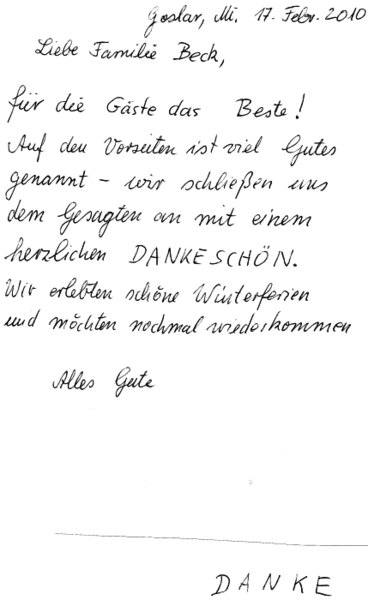 Goslar, Mi. 17. Febr. 2010
Liebe Familie Beck,
für die Gäste das Beste!
Auf den Vorseiten ist viel Gutes
genannt – wir schließen uns
dem Gesagten an mit einem
herzlichen DANKESCHÖN.
Wir erlebten schöne Winterferien
und möchten nochmal wiederkommen
Alles Gute
DANKE